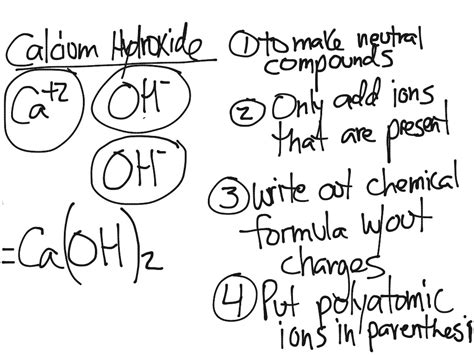 Calcium Hydroxide
Ca+2 OH-
OH-
=Ca(OH)2
① to make neutral
compounds
② Only add ions
that are present
③ Write out chemical
formula w/out
charges
④ Put polyatomic
ions in parenthesis